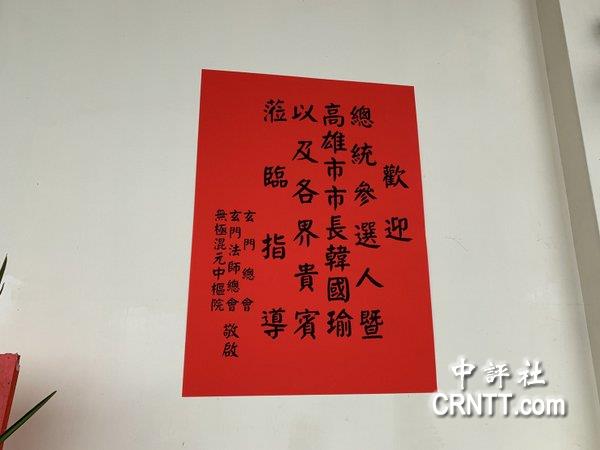 歡迎
總統參選人暨
高雄市市長韓國瑜
以及各界貴賓
蒞臨指導
玄門總會
玄門法師總會
無極混元中樞院
敬啟
中評社
CRNTT.com